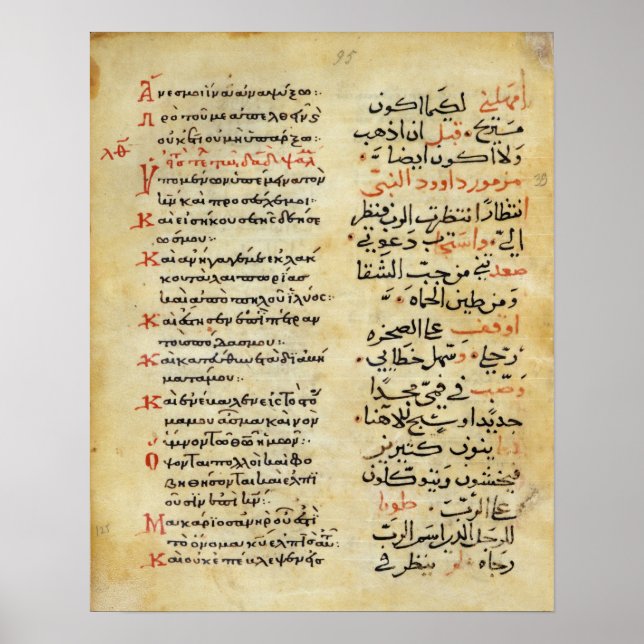 95
Ἄνες μοι ἵνα ἀναψύξω:·
Πρὸ τοῦ με ἀπελθεῖν καὶ
οὐκέτι οὐ μὴ ὑπάρξω:·
λθ
Εἰς τὸ τέλος τῷ δαδ ψαλμ
Ὑπομένων ὑπέμεινα τὸν
κν καὶ προσέσχε μοι:·
Καὶ εἰσήκουσε τῆς δεήσε
ώς μου:·
Καὶ ἀνήγαγέ με ἐκ λάκ
κου ταλαιπωρίας
καὶ ἀπὸ πηλοῦ ἰλύος:·
Καὶ ἔστησεν ἐπὶ πέτραν
τοὺς πόδας μου:·
Καὶ κατεύθυνε τὰ διαβή
ματά μου:·
Καὶ ἐνέβαλεν εἰς τὸ στό
μα μου ᾆσμα καινὸν
ὕμνον τῷ θω ἡμῶν:·
Ὄψονται πολλοὶ καὶ φο
βηθήσονται καὶ ἐλπι
οῦσιν ἐπὶ κν:·
Μακάριος ἀνὴρ οὗ ἐστι
τὸ ὄνομα κυ ἐλπὶς αὐτοῦ
Καὶ οὐκ ἐπέβλεψεν εἰς
125
امهلني لكيما اكون
مستريح قبل ان اذهب
ولا اكون ايضا
مزمور داوود النبي
39
انتظارا انتظرت الرب فنظر
الي واستجاب دعوتي
صعدني من جب الشقا
ومن طين الحماه
اوقف على الصخره
رجلي وسهل خطاي
وصب في فمي مجدا
جديدا وتسبيح لالاهنا
ينون كثيرين
فيخشون ويتوكلون
على الرب طوبا
للرجل الذي اسم الرب
رجاه ولم ينظر في